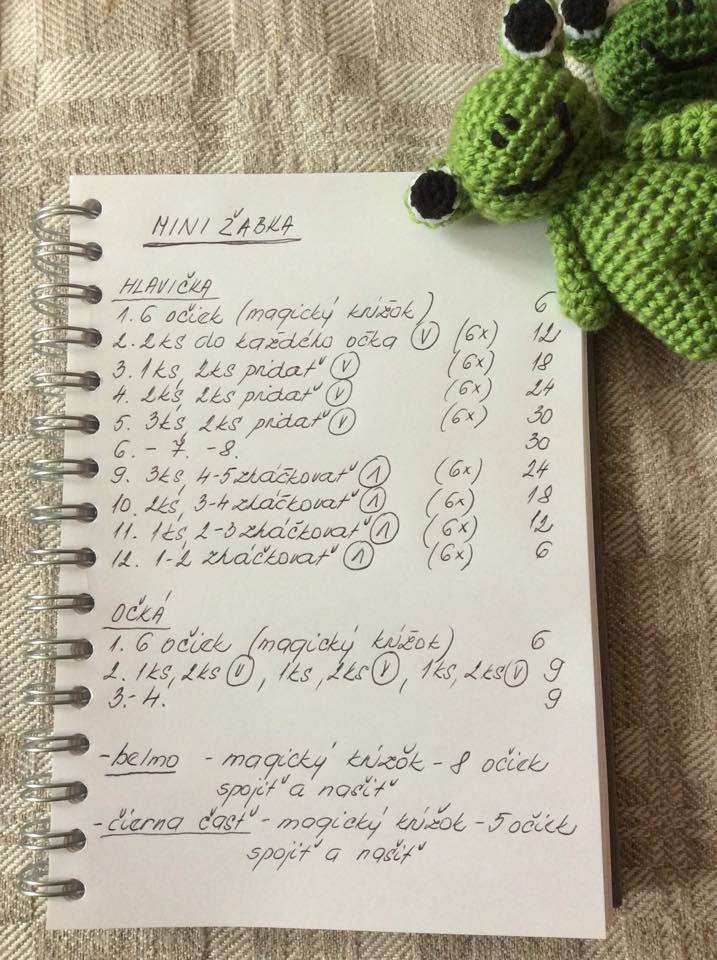 MINI ŽABKA
HLAVIČKA
1. 6 očiek (magický krížok) 6
2. 2ks do každého očka Ⓥ (6x) 12
3. 1kš, 2ks pridať Ⓥ (6x) 18
4. 2kš, 2ks pridať Ⓥ (6x) 24
5. 3kš, 2ks pridať Ⓥ (6x) 30
6. - 7. -8. 30
9. 3kš, 4-5 zháčkovať Ⓛ (6x) 24
10. 2kš, 3-4 zháčkovať Ⓛ (6x) 18
11. 1kš, 2-3 zháčkovať Ⓛ (6x) 12
12. 1-2 zháčkovať Ⓛ (6x) 6
OČKÁ
1. 6 očiek (magický krížok) 6
2. 1kš, 2ks Ⓥ, 1kš, 2ks Ⓥ, 1kš, 2ks Ⓥ 9
3.- 4. 9
- belmo - magický krížok - 8 očiek
spojiť a našiť
- čierna časť - magický krížok - 5 očiek
spojiť a našiť